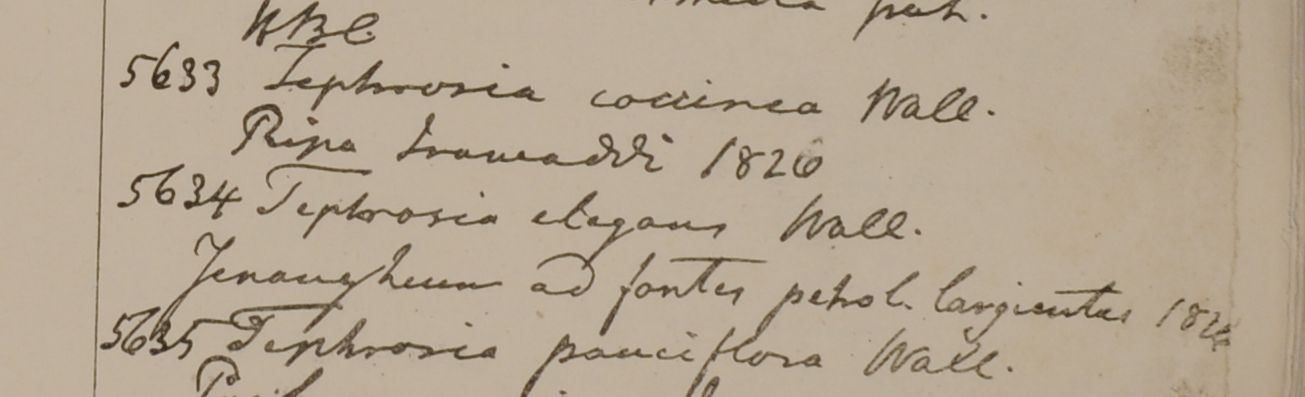 HBC
5633 Tephrosia coccinea Wall.
Ripa Irawaddi 1826
5634 Tephrosia elegans Wall.
ad fontes petrol. largientes 1826
5635 Tephrosia pauciflora Wall.